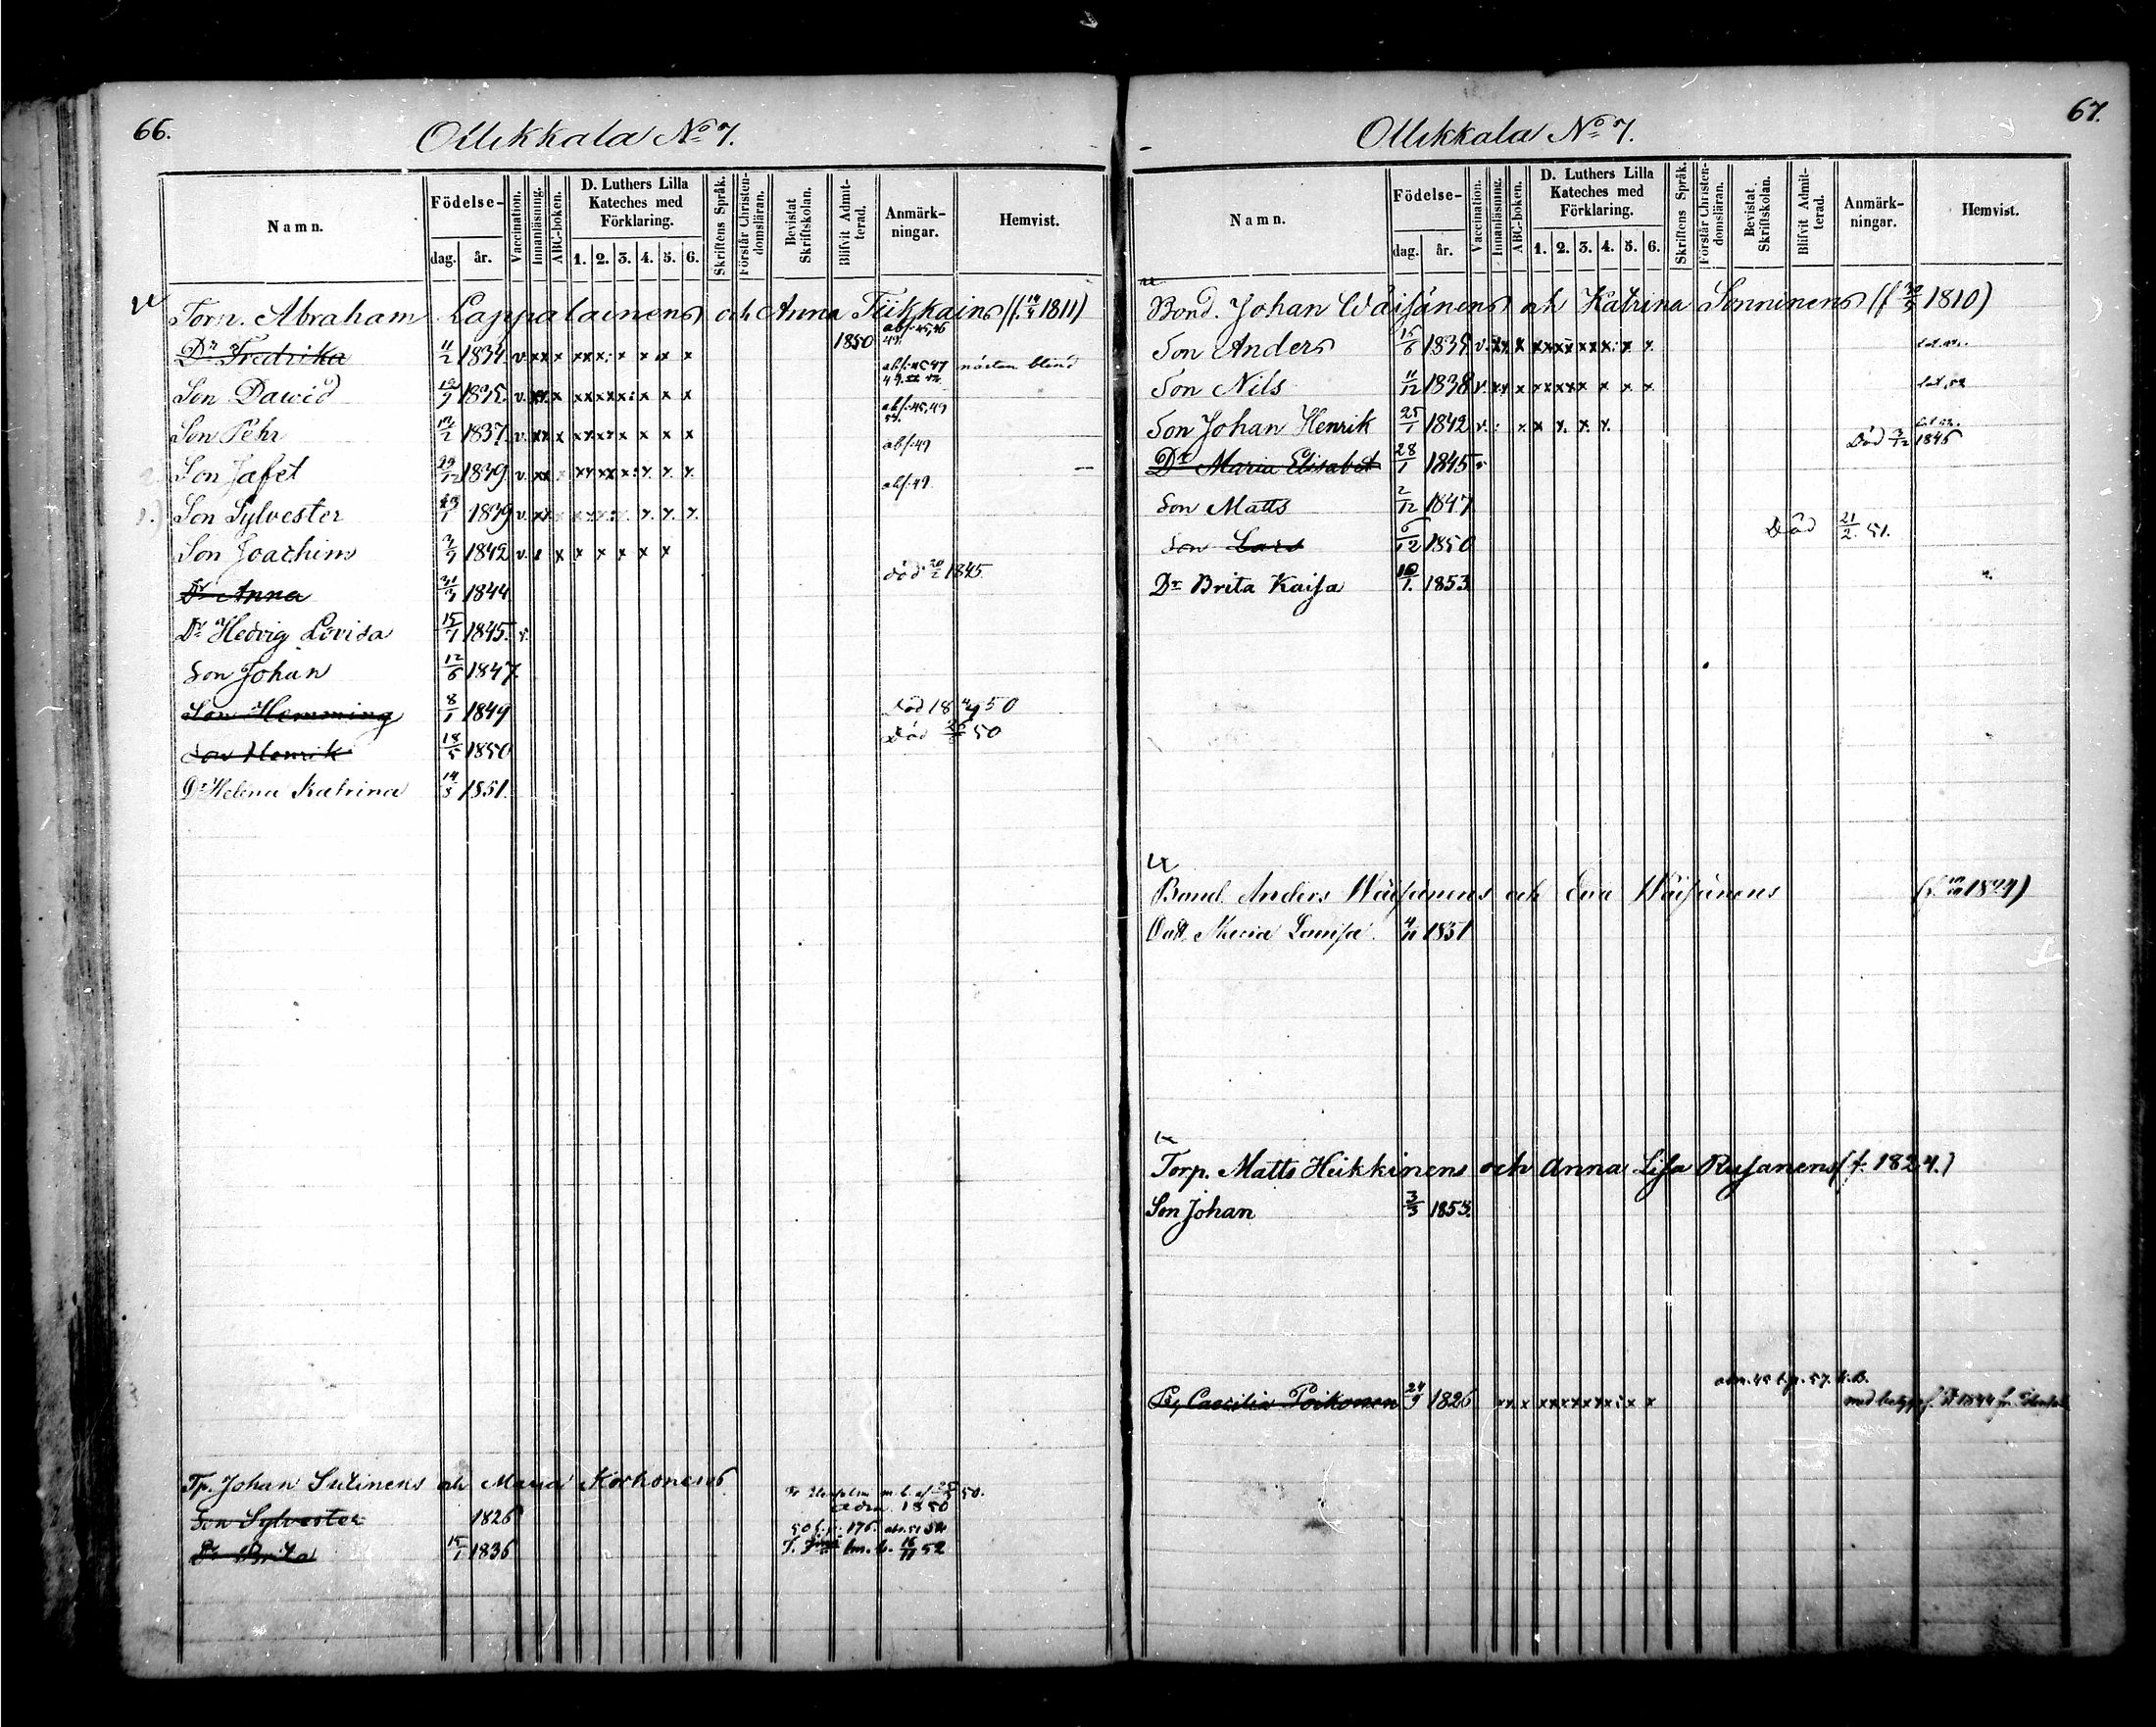 66.
Ollikkala No 7.
Namn.
Födelse-
dag.
år.
Vaccination.
Innanläsning.
ABC-boken.
D. Luthers Lilla
Kateches med
Förklaring.
1. 2. 3. 4. 5. 6.
Skriftens Språk.
Förstår Christen-
domsläran.
Bevistat
Skriftskolan.
Blifvit Admit-
terad.
Anmärk-
ningar.
Hemvist.
Torp. Abraham Lappalainens och Anna Tiikkains (f. 14/4 1811)
Dr Fredrika 11/2 1834. v. xx x xxx x x x x 1850 abs: 45, 46 49.
Son Dawid 19/7 1835. v. xx x xxxxx: x x x abs: 45 47 nästan blind
Son Pehr 12/2 1837. v. xx x xxxx x x x x abs: 45, 49
Son Jafet 29/12 1839. v. xx x xxxxx: x. x. x. abs: 49
Son Sylvester 1839 v. xx x. x. x. abs: 49.
Son Joachim 2/7 1842 v. x x x x x x x
Dr Anna 31/3 1844 död 20/2 1845.
Dr Hedvig Lovisa 15/7 1845. v.
Son Johan 12/6 1847.
Son Hemming 8/1 1849 Död 18 50
Son Henrik 18/5 1850 Död 50
Dr Helena Katrina 14/3 1851.
Tp. Johan Sutinens och Maria Korhonens
Son Sylvester 1826 adm. 1850
Dr Brita 15/1 1836 16/11 52
67.
Ollikkala No 7.
Namn.
Födelse-
dag.
år.
Vaccination.
Innanläsning.
ABC-boken.
D. Luthers Lilla
Kateches med
Förklaring.
1. 2. 3. 4. 5. 6.
Skriftens Språk.
Förstår Christen-
domsläran.
Bevistat
Skriftskolan.
Blifvit Admit-
terad.
Anmärk-
ningar.
Hemvist.
Bond. Johan Wäisänens och Katrina Sonninens (f 1810)
Son Anders 15/6 1835 v. xx. x xxxxxxxx: x x.
Son Nils 11/12 1838 v. xx x xxxxx x x x
Son Johan Henrik 25/1 1842 v. : x x x. x. x.
Dr Maria Elisabet 28/1 1845 v Död 3/12 1845
Son Matts 2/12 1847
Son Lars 6/12 1850 Död 21/2. 51.
Dr Brita Kaisa 10/1. 1853
Bond. Anders Wäisänens och Eva Wäisänens (f. 1824)
Dott. Maria Lovisa. 4/11 1851
Torp. Matts Heikkinens och Anna Lisa Rusanens (f. 1824.)
Son Johan 3/3 1853.
Pig. Caecilia Poikonen 24/9 1826 xx x xxxxxxx: x x